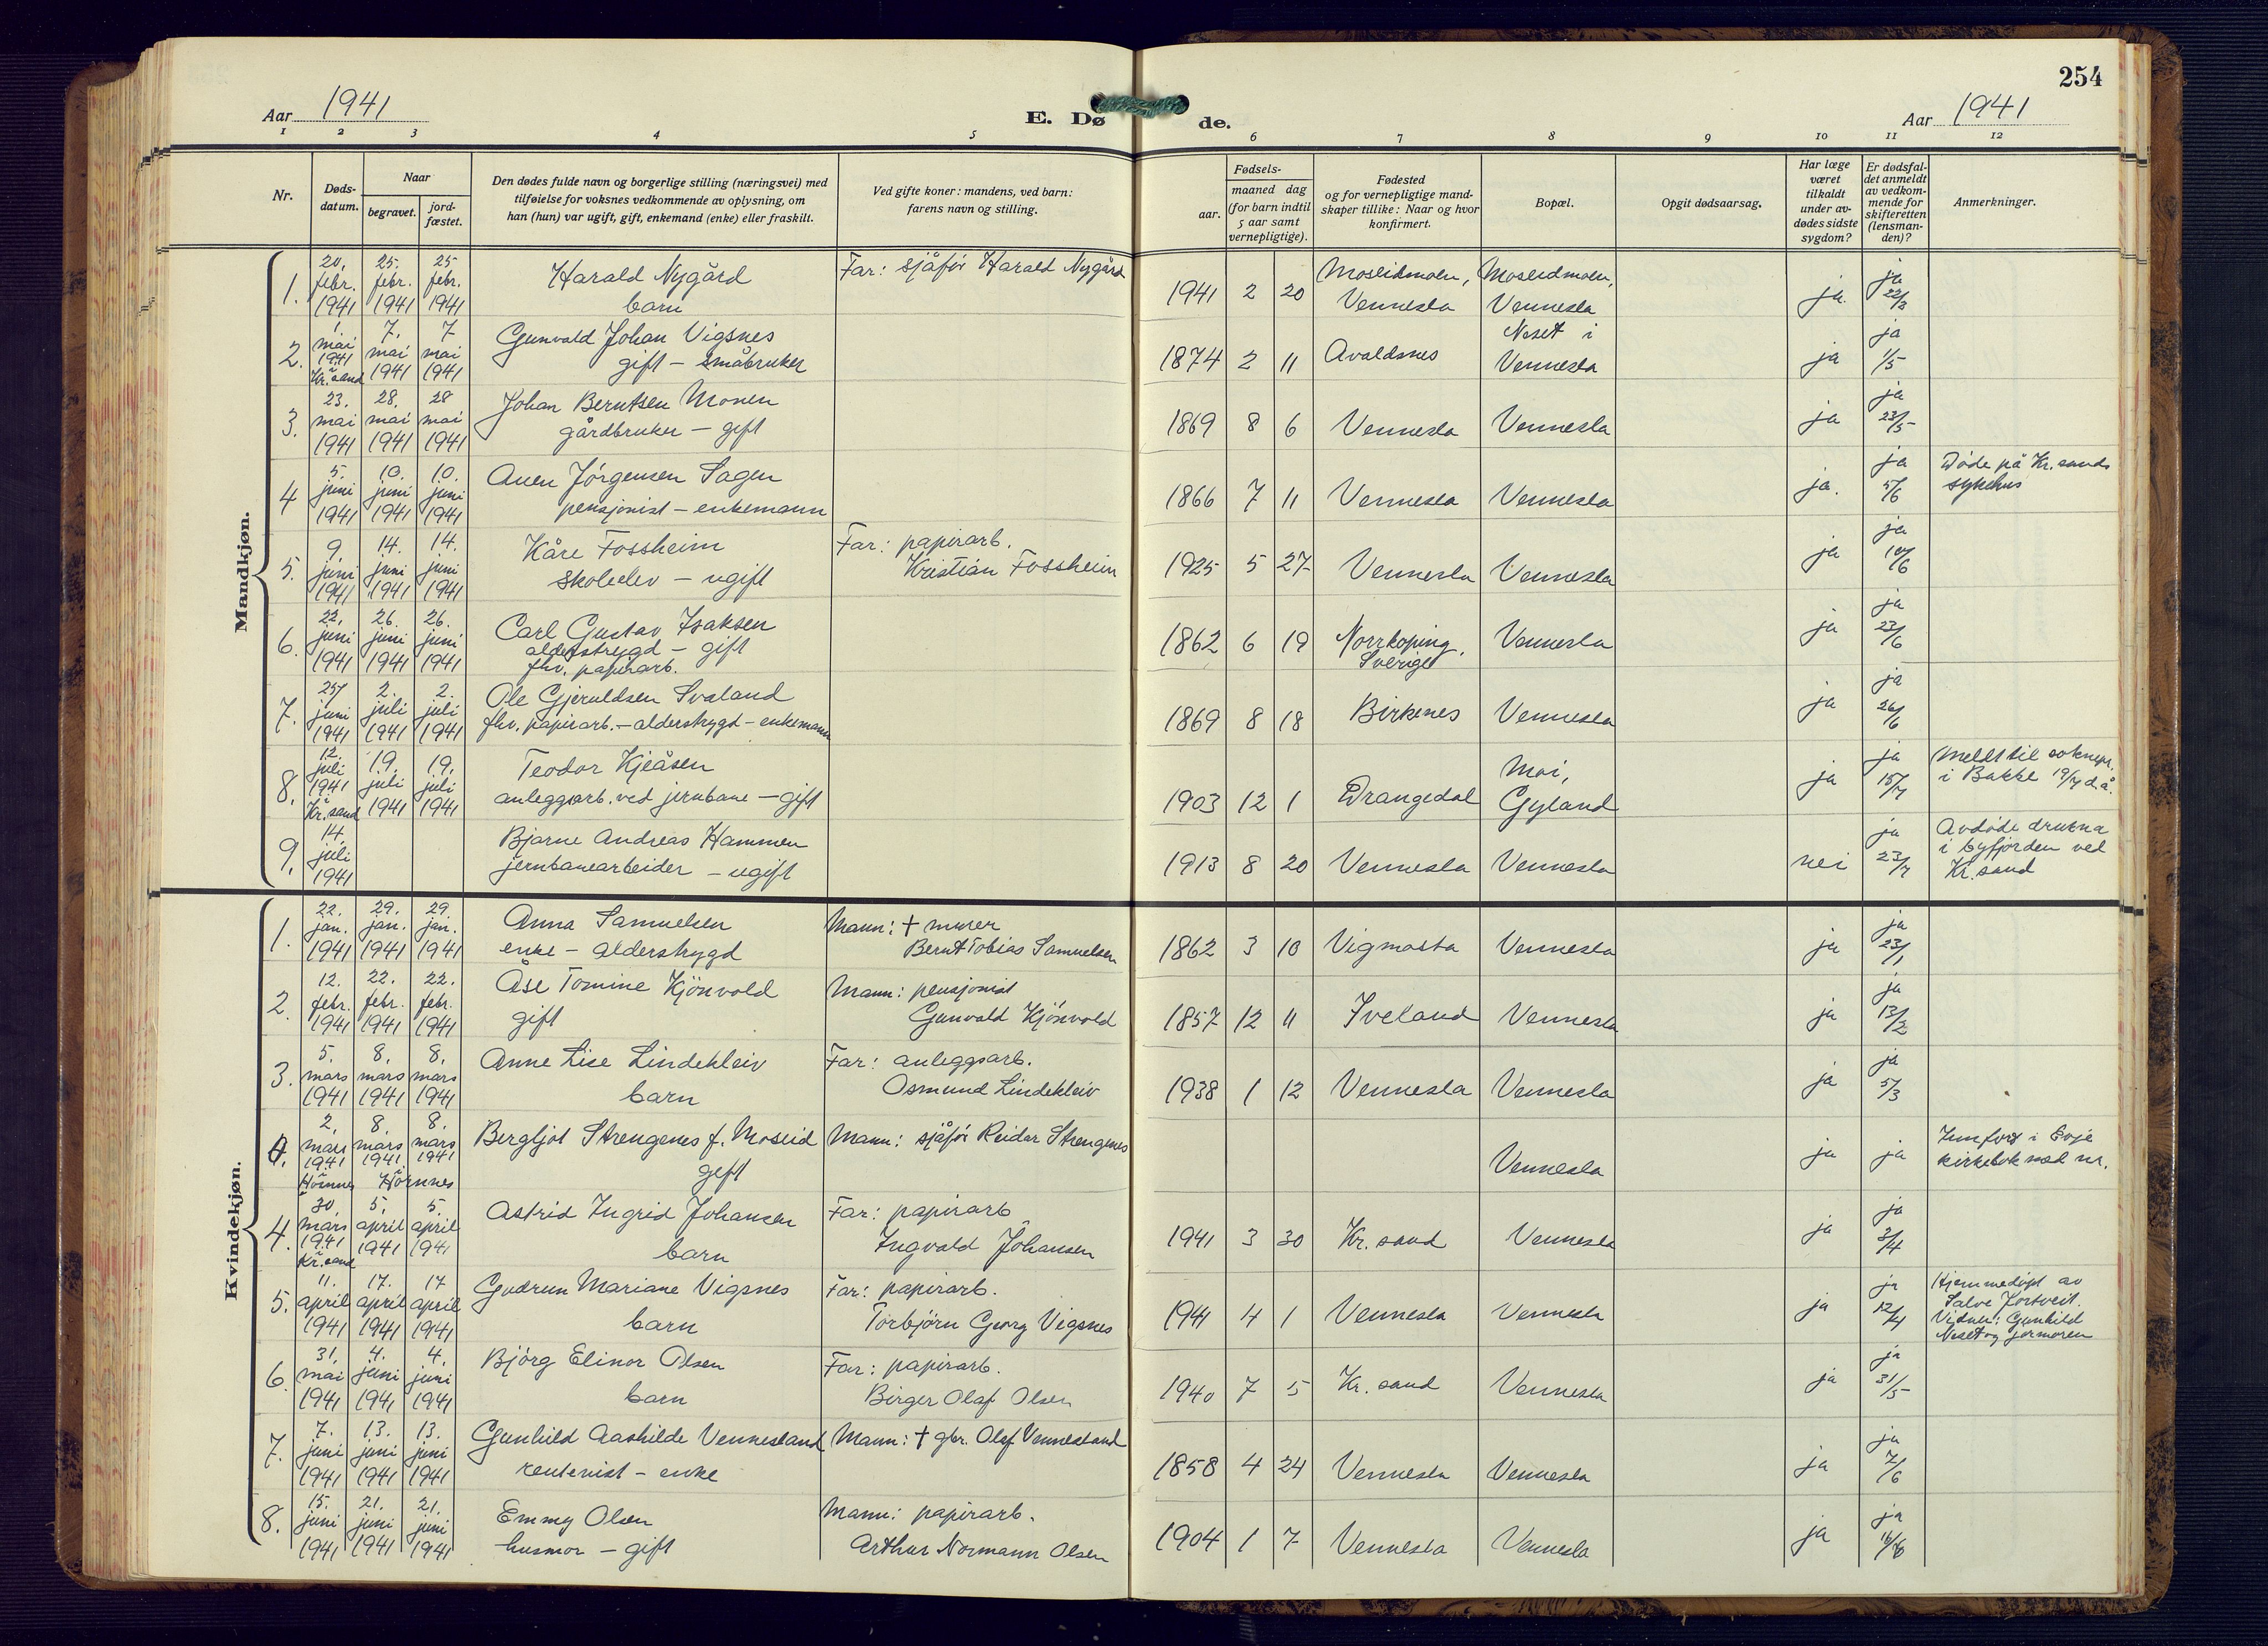 254
Aar 1941
E. Døde.
Aar 1941
1 2 3 4 5 6 7 8 9 10 11 12
Nr.
Døds-
datum.
Naar
begravet.
jord-
fæstet.
Den dødes fulde navn og borgerlige stilling (næringsvei) med
tilføielse for voksnes vedkommende av oplysning, om
han (hun) var ugift, gift, enkemand (enke) eller fraskilt.
Ved gifte koner: mandens, ved barn:
farens navn og stilling.
Fødsels-
aar.
maaned dag
(for barn indtil
5 aar samt
vernepligtige).
Fødested
og for vernepligtige mand-
skaper tillike: Naar og hvor
konfirmert.
Bopæl.
Opgit dødsaarsag.
Har læge
været
tilkaldt
under av-
dødes sidste
sygdom?
Er dødsfal-
det anmeldt
av vedkom-
mende for
skifteretten
(lensman-
den)?
Anmerkninger.
Mandkjøn.
1. 20. febr. 1941 25. febr. 1941 25 febr. 1941 Harald Nygård barn Far: sjåfør Harald Nygård 1941 2 20 Moseidmoen, Vennesla Moseidmoen, Vennesla ja. ja 22/2
2. 1. mai 1941 Kr.sand 7. mai 1941 7 mai 1941 Gunvald Johan Vigsnes gift - småbruker 1874 2 11 Avaldsnes Neset i Vennesla ja ja 1/5-
3. 23. mai 1941 28. mai 1941 28 mai 1941 Johan Berntsen Monen gårdbruker - gift 1869 8 6 Vennesla Vennesla ja ja 23/5-
4 5. juni 1941 10. juni 1941 10. juni 1941 Auen Jörgensen Sagen pensjonist - enkemann 1866 7 11 Vennesla Vennesla ja. ja 5/6 Døde på Kr.sands sykehus
5. 9. juni 1941 14. juni 1941 14. juni 1941 Kåre Fossheim skoleelev - ugift Far: papirarb. Kristian Fossheim 1925 5 27 Vennesla Vennesla ja ja 10/6
6. 22. juni 1941 26. juni 1941 26. juni 1941 Carl Gustav Isaksen alderstrygd - gift fhv. papirarb. 1862 6 19 Norrkoping, Sverige Vennesla ja ja 23/6
7. 25/ juni 1941 2. juli 1941 2. juli 1941 Ole Gjeruldsen Svaland fhv. papirarb. - alderstrygd - enkemann 1869 8 18 Birkenes Vennesla ja ja 26/6
8. 12. juli 1941 Kr.sand 19. juli 1941 19. juli 1941 Teodor Kjeåsen anleggsarb. ved jernbane - gift 1903 12 1 Drangedal Moi, Gyland ja ja 15/7 Meldt til soknepr. i Bakke 19/7 d.å.
9. 14. juli 1941 Bjarne Andreas Hammen jernbanearbeider - ugift 1913 8 20 Vennesla Vennesla nei ja 23/7 Avdöde drukna i byfjorden ved Kr.sand
Kvindekjøn.
1. 22. jan. 1941 29. jan. 1941 29. jan. 1941 Anna Samuelsen enke - alderstrygd Mann: † murer Bernt Tobias Samuelsen 1862 3 10 Vigmosta Vennesla ja ja 23/1
2. 12. febr. 1941 22. febr. 1941 22. febr. 1941 Åse Tomine Kjönvold gift Mann: pensjonist Gunvald Kjönvold 1857 12 11 Iveland Vennesla ja ja 13/2
3. 5. mars 1941 8. mars 1941 8. mars 1941 Anne Lise Lindekleiv barn Far: anleggsarb. Osmund Lindekleiv 1938 1 12 Vennesla Vennesla ja ja 5/3
0. 2. mars 1941 Hornnes 8. mars 1941 8. mars 1941 Hornnes Bergljot Strengenes f. Moseid gift Mann: sjåfør Reidar Strengenes Vennesla ja ja Innført i Evje kirkebok med nr.
4. 30. mars 1941 Kr.sand 5. april 1941 5. april 1941 Astrid Ingrid Johansen barn Far: papirarb Ingvald Johansen 1941 3 30 Kr. sand Vennesla ja ja 2/4
5. 11. april 1941 17. april 1941 17 april 1941 Gudrun Mariane Vigsnes barn Far: papirarb. Torbjörn Georg Vigsnes 1941 4 1 Vennesla Vennesla ja ja 12/4 Hjemmedøpt av Salve Jortveit. Vidner: Gunhild Neset og jormoren
6. 31. mai 1941 4. juni 1941 4. juni 1941 Björg Elinor Olsen barn Far: papirarb. Birger Olaf Olsen 1940 7 5 Kr. sand Vennesla ja ja 31/5-
7. 7. juni 1941 13. juni 1941 13. juni 1941 Gunhild Aashilde Vennesland rentenist - enke Mann: † gbr. Olaf Vennesland 1858 4 24 Vennesla Vennesla ja ja 7/6
8. 15. juni 1941 21. juni 1941 21. juni 1941 Emmy Olsen husmor - gift Mann: papirarb. Arthur Normann Olsen 1904 1 7 Vennesla Vennesla ja ja 16/6